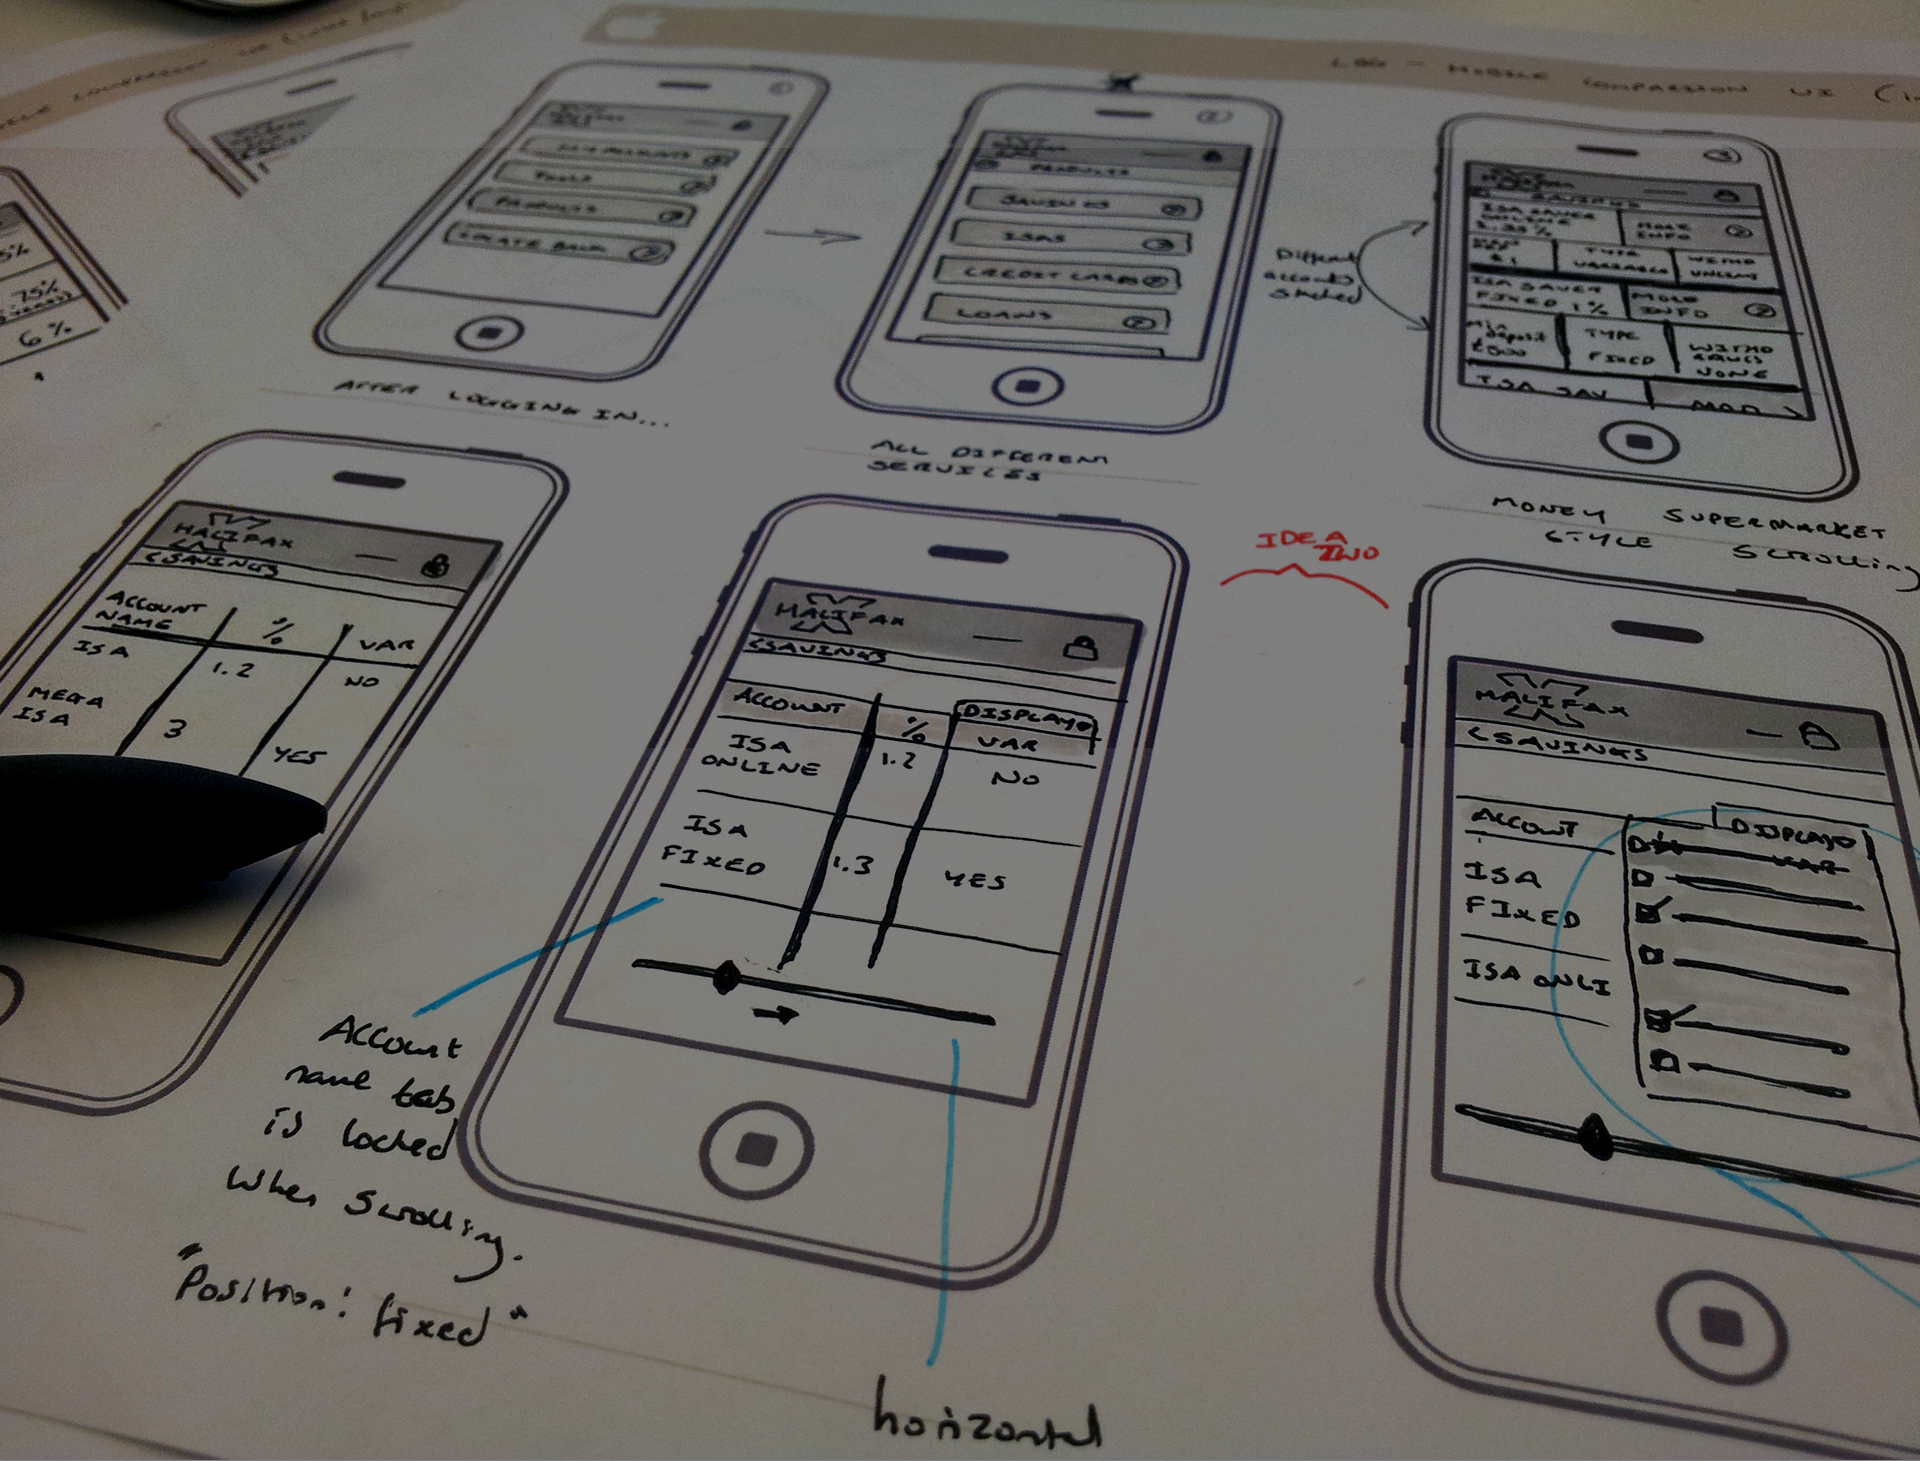 LBG - MOBILE COMPARISON UI
TOOLS
PRODUCTS
AFTER LOGGING IN...
PRODUCTS
SAVINGS
ISAS
CREDIT CARDS
LOANS
ALL DIFFERENT
SERVICES
Different
accounts
stacked
SAVINGS
ISA SAVER
ONLINE
MORE
INFO
£1
TYPE
VARIABLE
ISA SAVER
FIXED 1%
INFO
Min
deposit
£500
TYPE
FIXED
NONE
MONEY SUPERMARKET
STYLE SCROLLING
5%
.75%
6%
HALIFAX
<SAVINGS
ACCOUNT
NAME
%
VAR
ISA
1.2
NO
MEGA
ISA
3
YES
HALIFAX
<SAVINGS
ACCOUNT
%
DISPLAY
VAR
ISA
ONLINE
1.2
NO
ISA
FIXED
1.3
YES
IDEA
TWO
HALIFAX
<SAVINGS
ACCOUNT
DISPLAY
ISA
FIXED
ISA ONLI
Account
name tab
is locked
when scrolling.
"Position: fixed"
horizontal